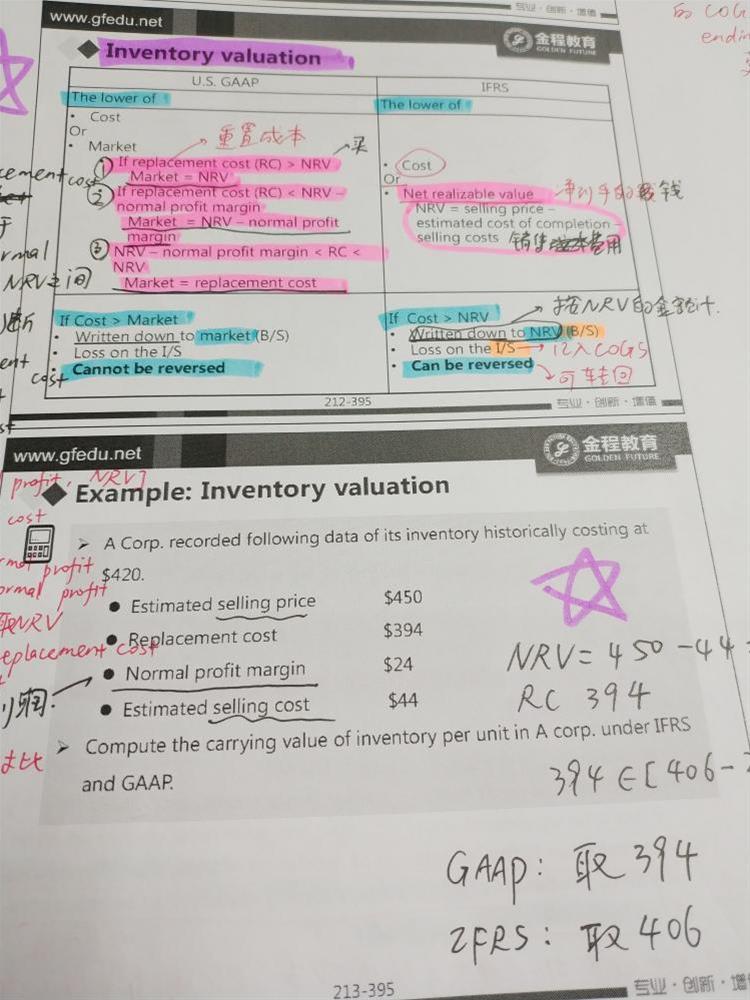 www.gfedu.net
专业·创新·增值
金程教育
GOLDEN FUTURE
的 COG
endin
Inventory valuation
U.S. GAAP
IFRS
The lower of
The lower of
• Cost
Or
• Market
重置成本
买
① If replacement cost (RC) > NRV
Market = NRV
② If replacement cost (RC) < NRV –
normal profit margin
Market = NRV – normal profit
margin
③ NRV – normal profit margin < RC <
NRV
Market = replacement cost
• Cost
Or
• Net realizable value
净到手的钱
NRV = selling price –
estimated cost of completion –
selling costs 销售费用
cement cost
rmal
NRV之间
ent
cost
If Cost > Market
• Written down to market (B/S)
• Loss on the I/S
• Cannot be reversed
If Cost > NRV
按NRV的金额计.
• Written down to NRV (B/S)
• Loss on the I/S → 记入COGS
• Can be reversed
可转回
212-395
专业·创新·增值
www.gfedu.net
金程教育
GOLDEN FUTURE
profit, NRV]
cost
Example: Inventory valuation
➢ A Corp. recorded following data of its inventory historically costing at
$420.
● Estimated selling price $450
● Replacement cost $394
● Normal profit margin $24
● Estimated selling cost $44
rmal profit
ormal profit
取NRV
eplacement cost
利润
对比
NRV = 450 - 44 =
RC 394
➢ Compute the carrying value of inventory per unit in A corp. under IFRS
and GAAP.
394 ∈ [ 406 -
GAAP: 取 394
IFRS: 取 406
213-395
专业·创新·增值